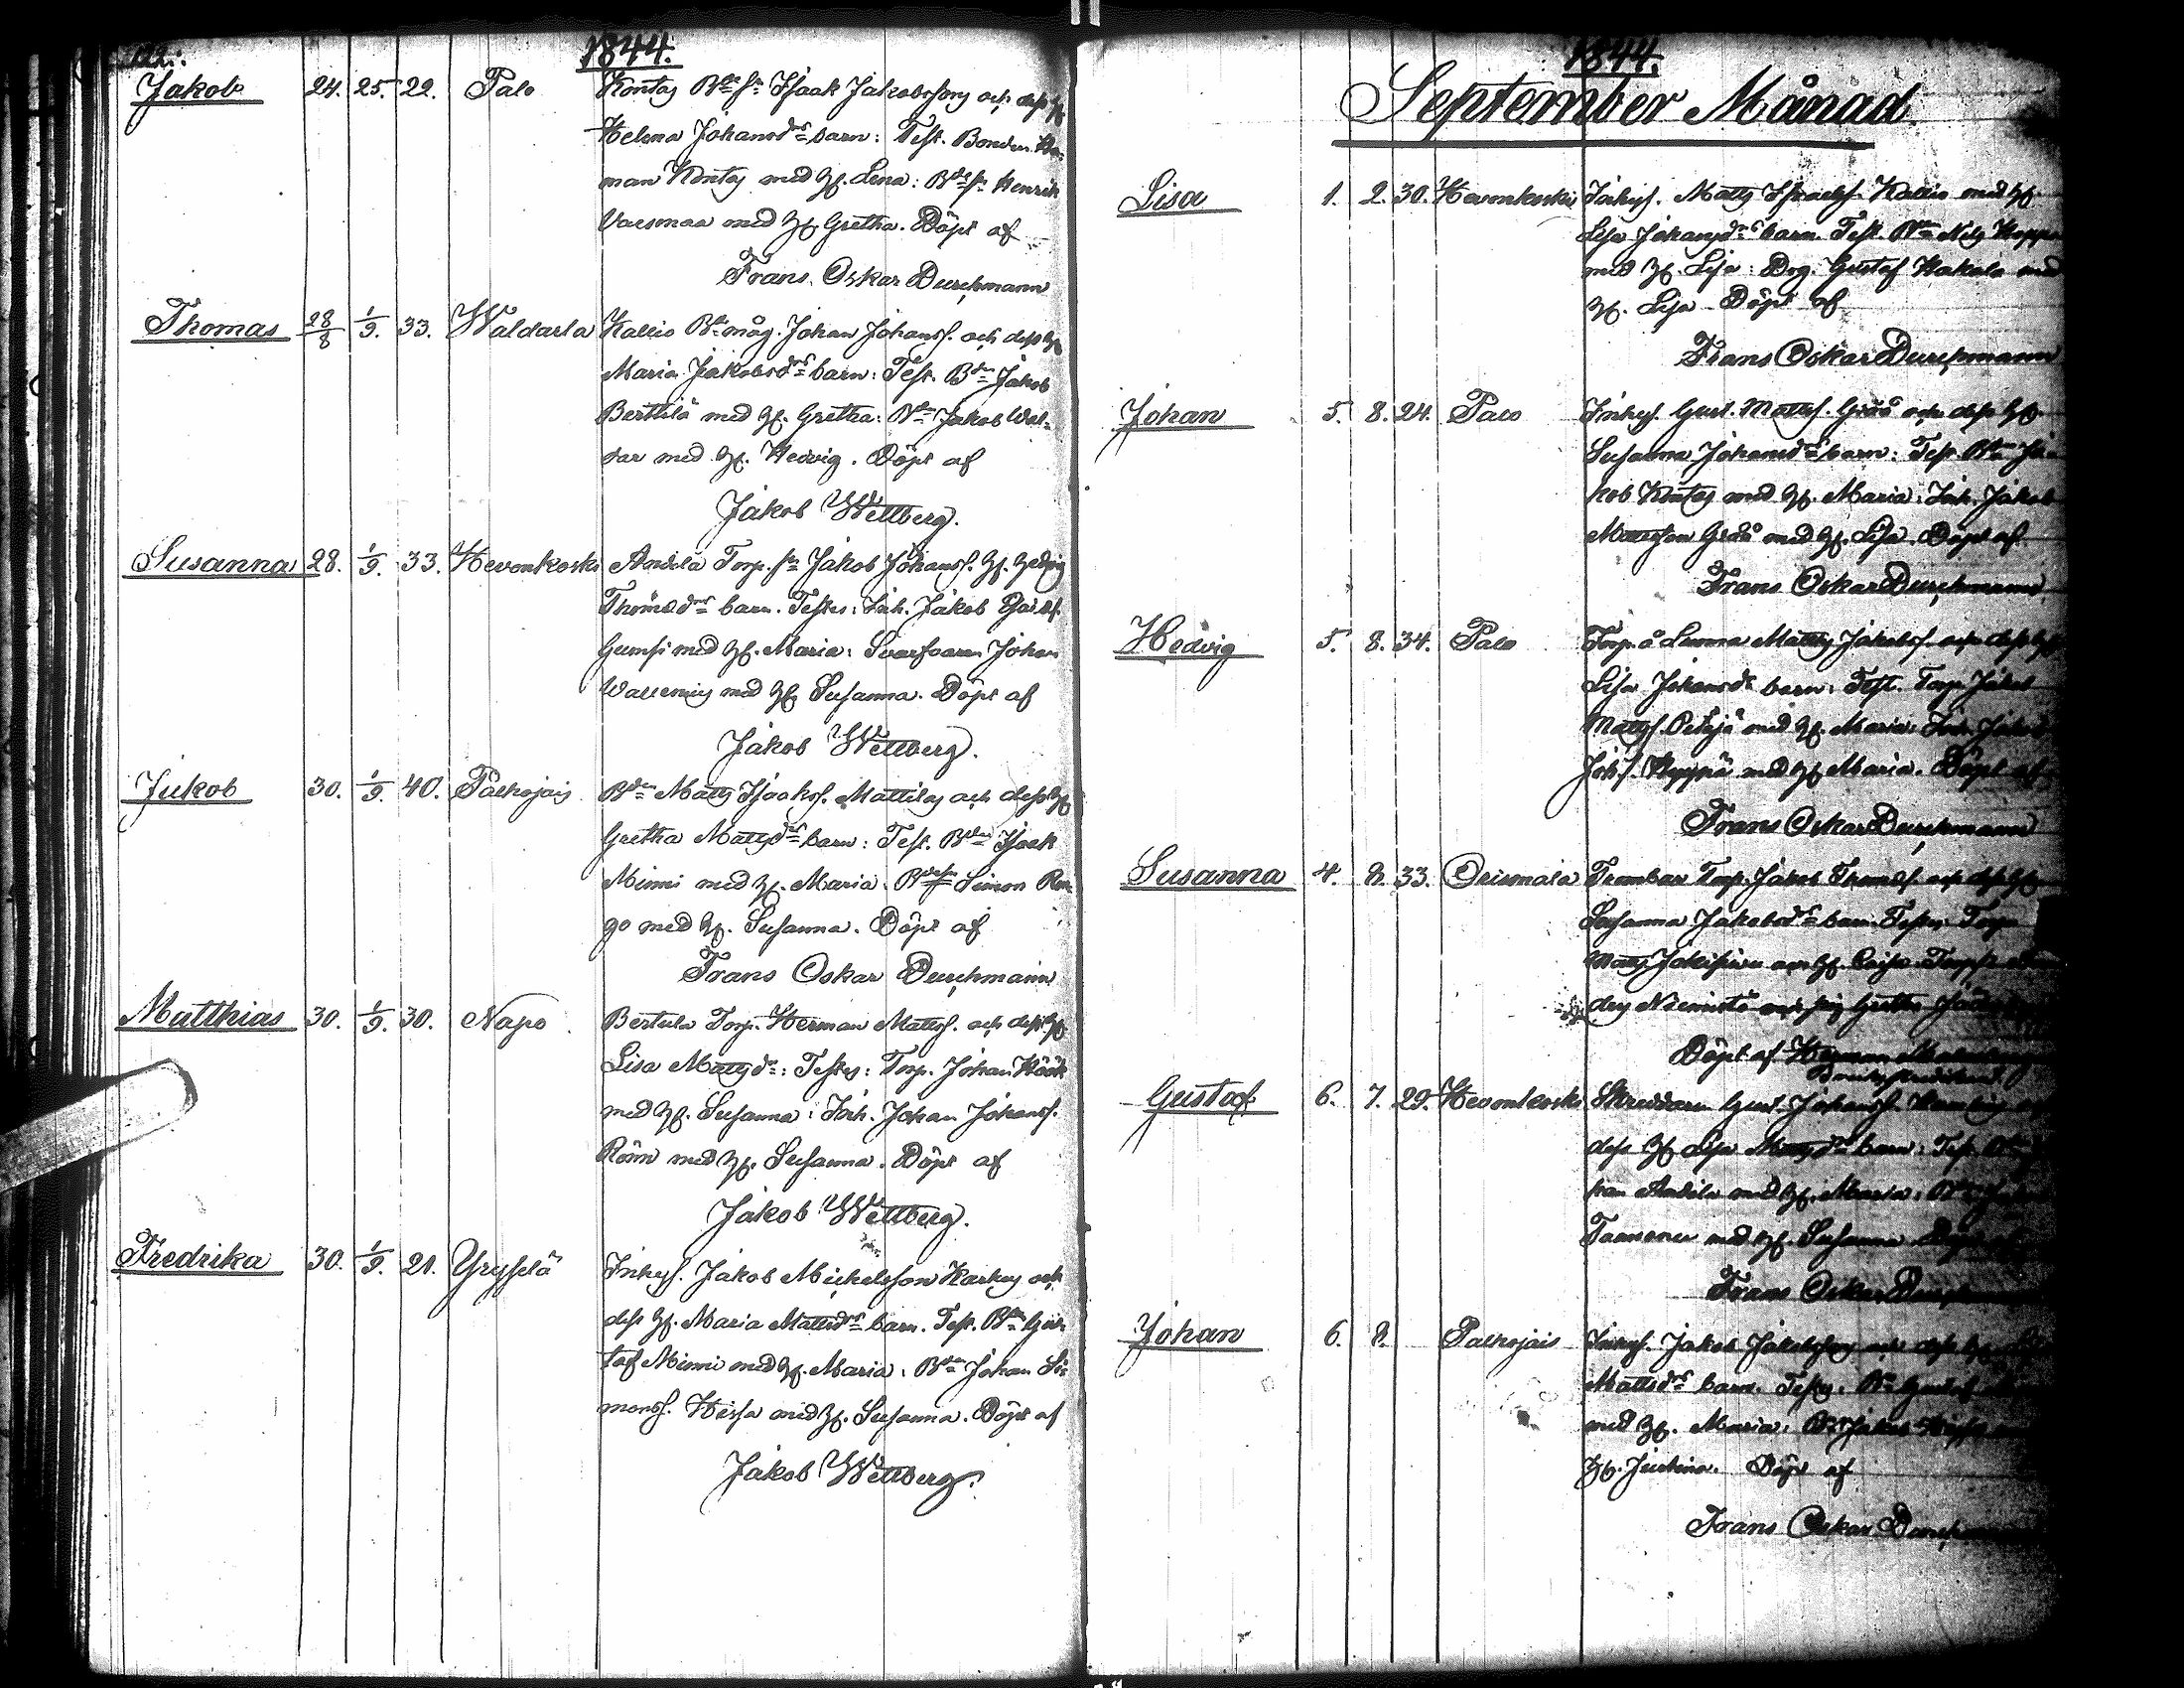 122.
1844.
Jakob 24. 25. 22. Palo Kontas Bde sn Isaak Jakobsson och dess H.
Helena Johansdr barn: Test. Bonden Her-
man Kontas med H. Lena: Bdesn Henrik
Vaismaa med H. Gretha. Döpt af
Frans Oskar Durchmann
Thomas 28/8 1/9. 33. Waldarla Kallio Bde måg. Johan Johanss. och dess H
Maria Jakobsdr barn: Test. Bden Jakob
Berttilä med H. Gretha: Bden Jakob Wal-
dar med H. Hedvig. Döpt af
Jakob Wettberg.
Susanna 28. 1/9. 33. Hevonkoski Andila Torp. sn Jakob Johanss. H. Hedvig
Thomasdr barn. Testes: Inh. Jakob
Gumsi med H. Maria: Svarfvaren Johan
Wallenius med H. Susanna. Döpt af
Jakob Wettberg.
Jakob 30. 1/9. 40. Palhojais Bden Matts Isaakss. Mattilas och dess H
Gretha Mattsdr barn: Test. Bden Isaak
Minni med H. Maria. Bdesn Simon Ran-
go med H. Susanna. Döpt af
Frans Oskar Durchmann
Matthias 30. 1/9. 30. Napo Bertula Torp. Herman Mattss. och dess H
Lisa Mattsdr: Testes: Torp. Johan Höök
med H. Susanna: Inh. Johan Johanss.
Rönn med H. Susanna. Döpt af
Jakob Wettberg.
Fredrika 30. 1/9. 21. Yrysselä Inhys. Jakob Michelsson Karhus och
dess H. Maria Mattsdr barn. Test. Bden Gus-
taf Minni med H. Maria: Bden Johan Si-
monss. Heissa med H. Susanna. Döpt af
Jakob Wettberg.
1844.
September Månad
Lisa 1. 2. 30. Hevonkoski Inhys. Matts Israelss. Kallio med H.
Lisa Johansdr barn. Test. Bden Nils
med H. Lisa: Drg. Gustaf Hakala med
H. Lisa. Döpt af
Frans Oskar Durchmann
Johan 5. 8. 24. Palo Inhys. Gust. Mattss. Gråå och dess H
Susanna Johansdr barn: Test. Bden Ja-
kob Kontas med H. Maria: Inh. Jakob
Mattsson Gråå med H. Lisa. Döpt af
Frans Oskar Durchmann
Hedvig 5. 8. 34. Palo Torp. å Lunna Matts Jakobss. och dess H
Lisa Johansdr barn: Test. Torp. Jakob
Mattss. Petäjä med H. Maria: Inh. Jakob
Johs. Heppä med H. Maria. Döpt af
Frans Oskar Durchmann
Susanna 4. 8. 33. Orismala Trumbar Torp. Jakob Thomass. och dess H
Susanna Jakobsdr barn. Testes: Torp.
Matts
Niemistö och pig Gretha
Döpt af Herman
Gustaf 6. 7. 29. Hevonkoski Skreddaren Gust. Johanss.
dess H. Lisa Mattsdr barn: Test.
han Andila med H. Maria:
Taanonen med H. Susanna Döpt af
Frans Oskar Durchmann
Johan 6. 8. Palhojais Inhys. Jakob Jakobsson och dess H.
Mattsdr barn. Testes: Bn Gustaf
med H. Maria: Bdn Jakob
H. Justina. Döpt af
Frans Oskar Durchmann